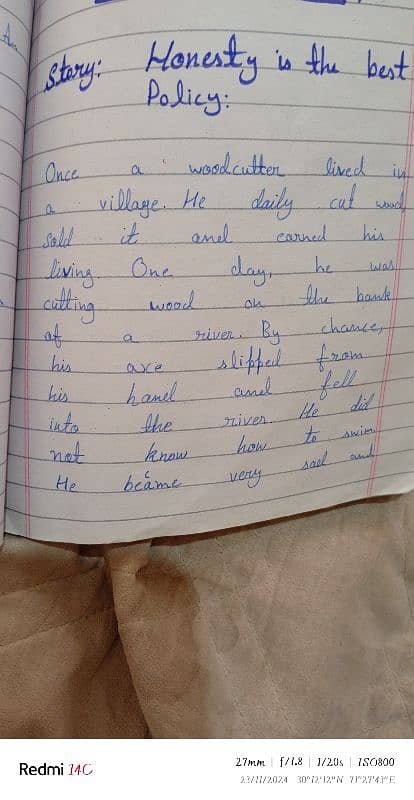 Story: Honesty is the best
Policy:
Once a woodcutter lived in
a village. He daily cut wood
sold it and earned his
living. One day, he was
cutting wood on the bank
of a river. By chance,
his axe slipped from
his hand and fell
into the river. He did
not know how to swim
He became very sad and
Redmi 14C
27mm | f/1.8 | 1/20s | ISO800
23/11/2024 30°12'12"N 71°27'43"E